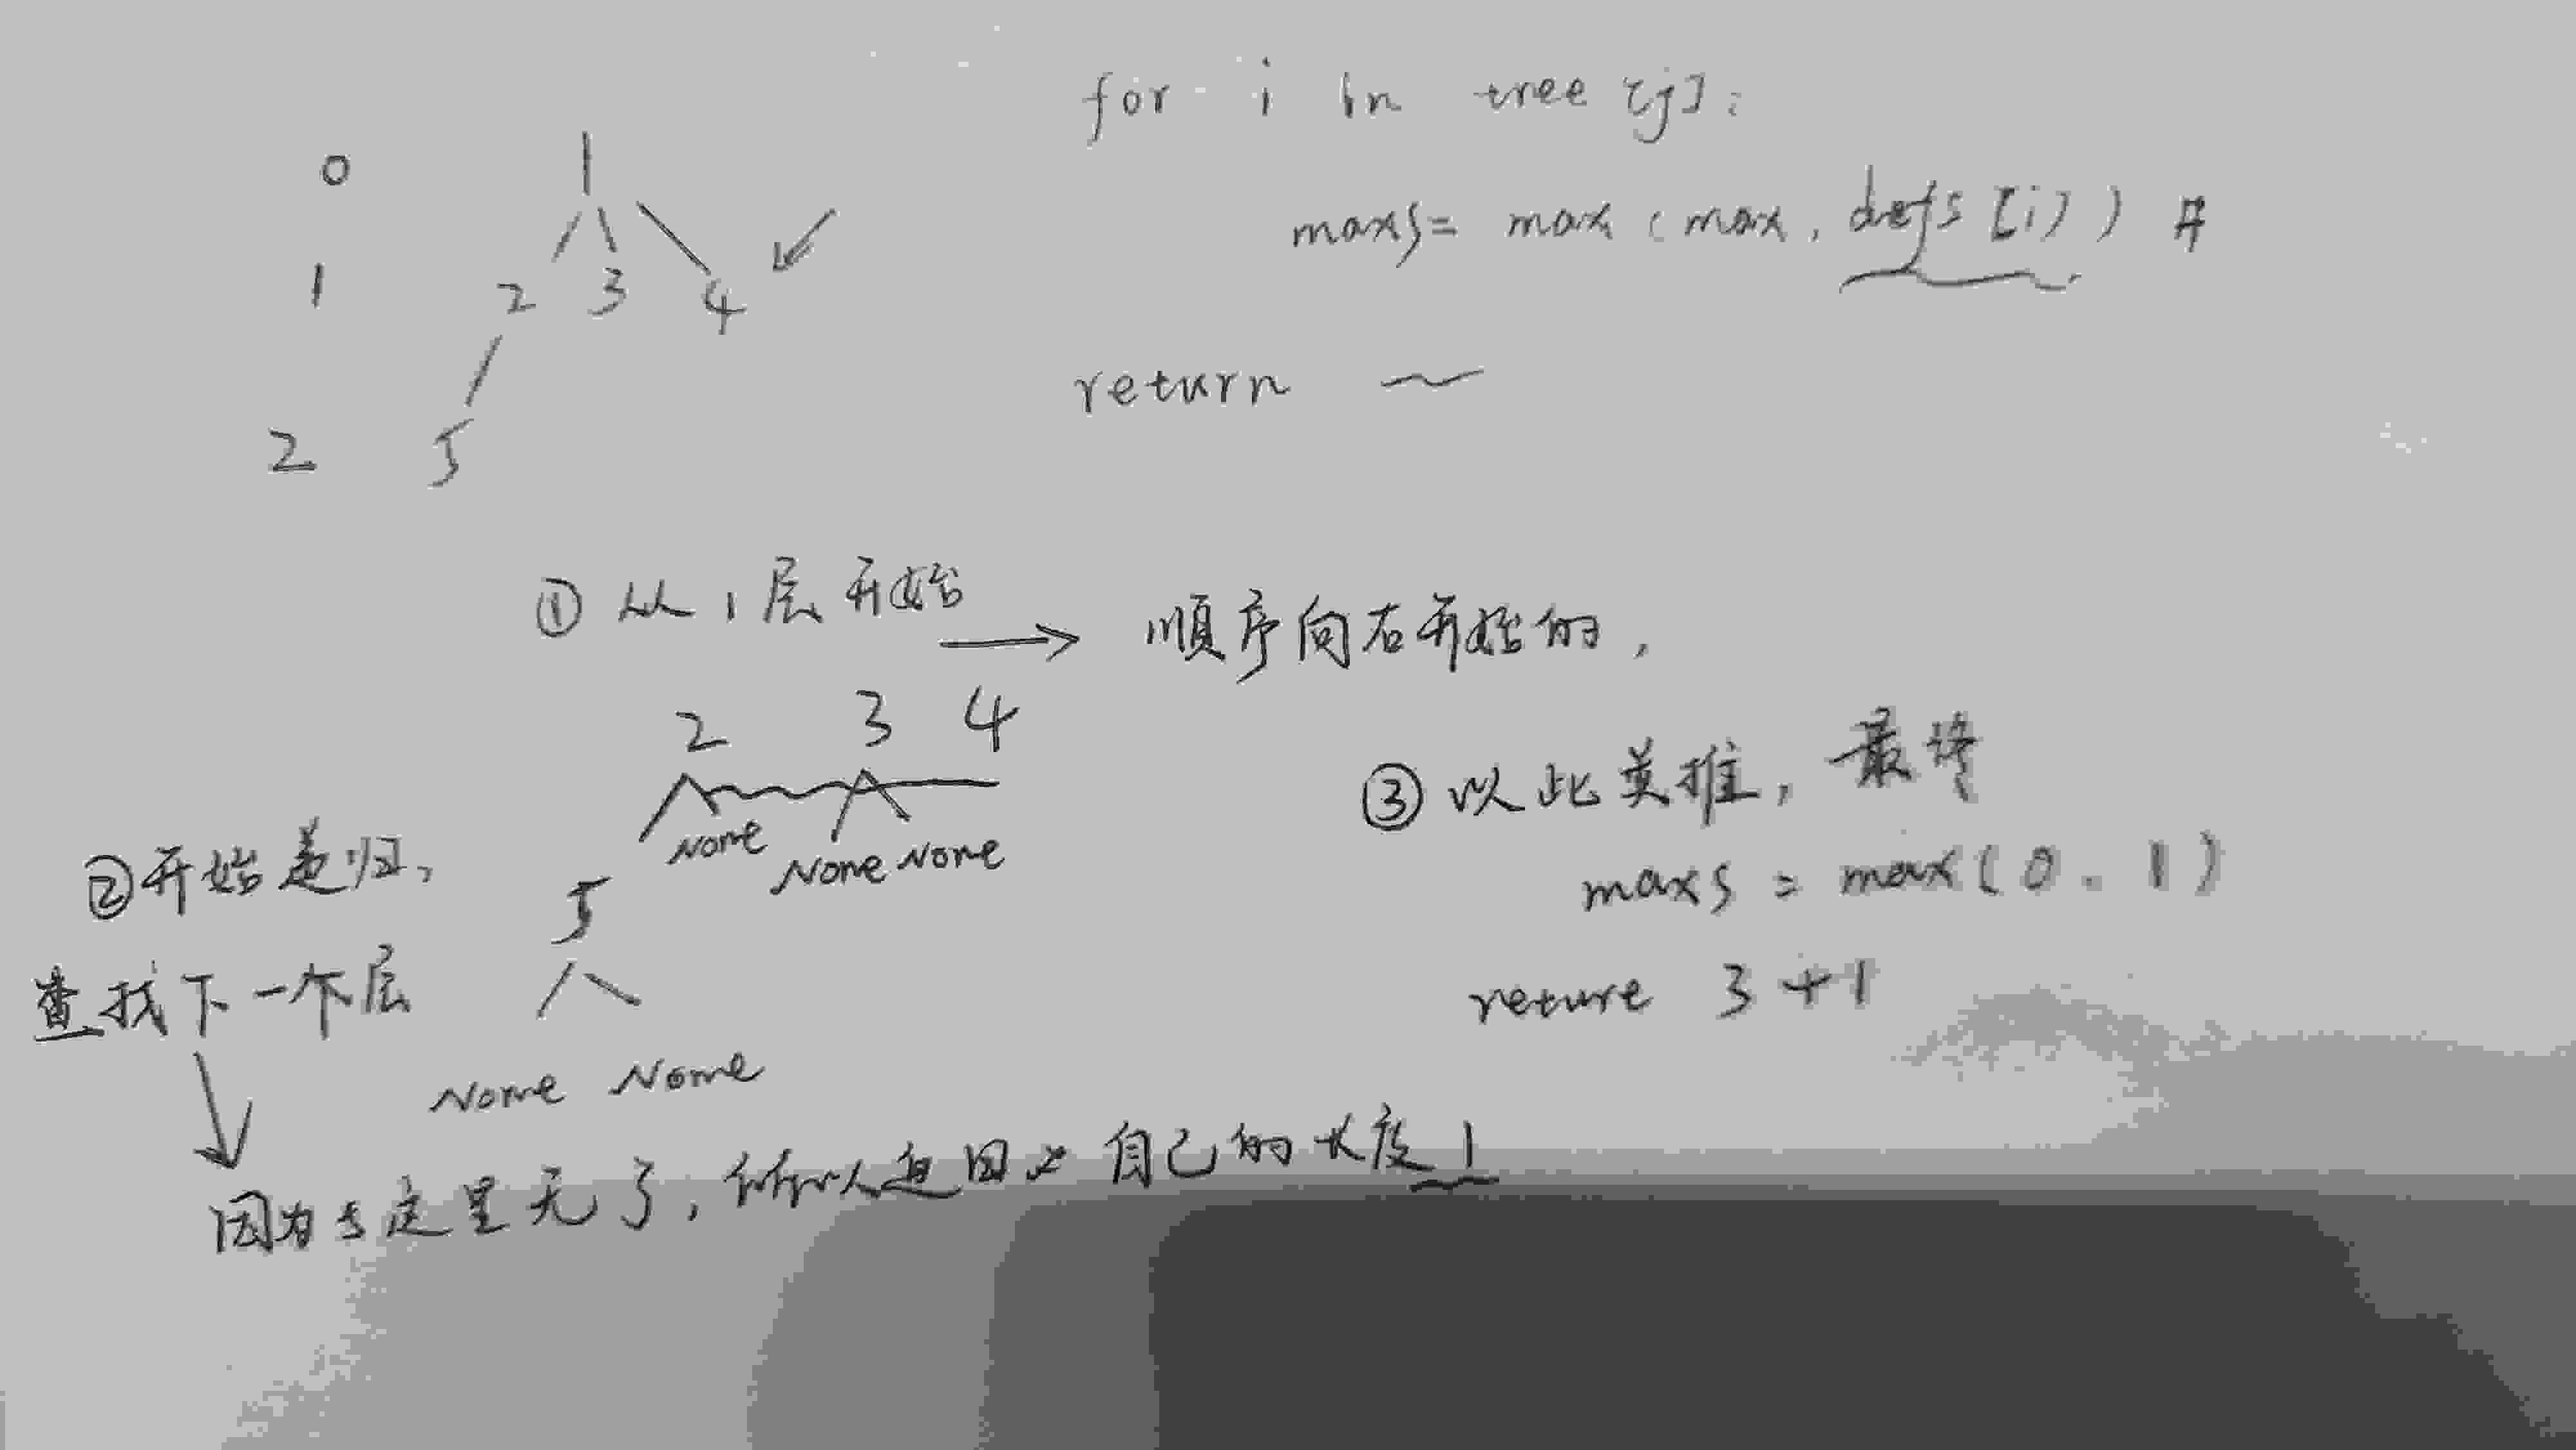 for i in tree [j]:
0 1
maxs = max (max, defs [i]) #
1 2 3 4
return
2 5
① 从 1 层开始
顺序向右开始的,
2 3 4
③ 以此类推, 最终
None
None None
②开始递归,
maxs = max(0. 1)
5
查找下一个层
reture 3 + 1
None None
因为5这里无了, 所以返回 自己的长度 1